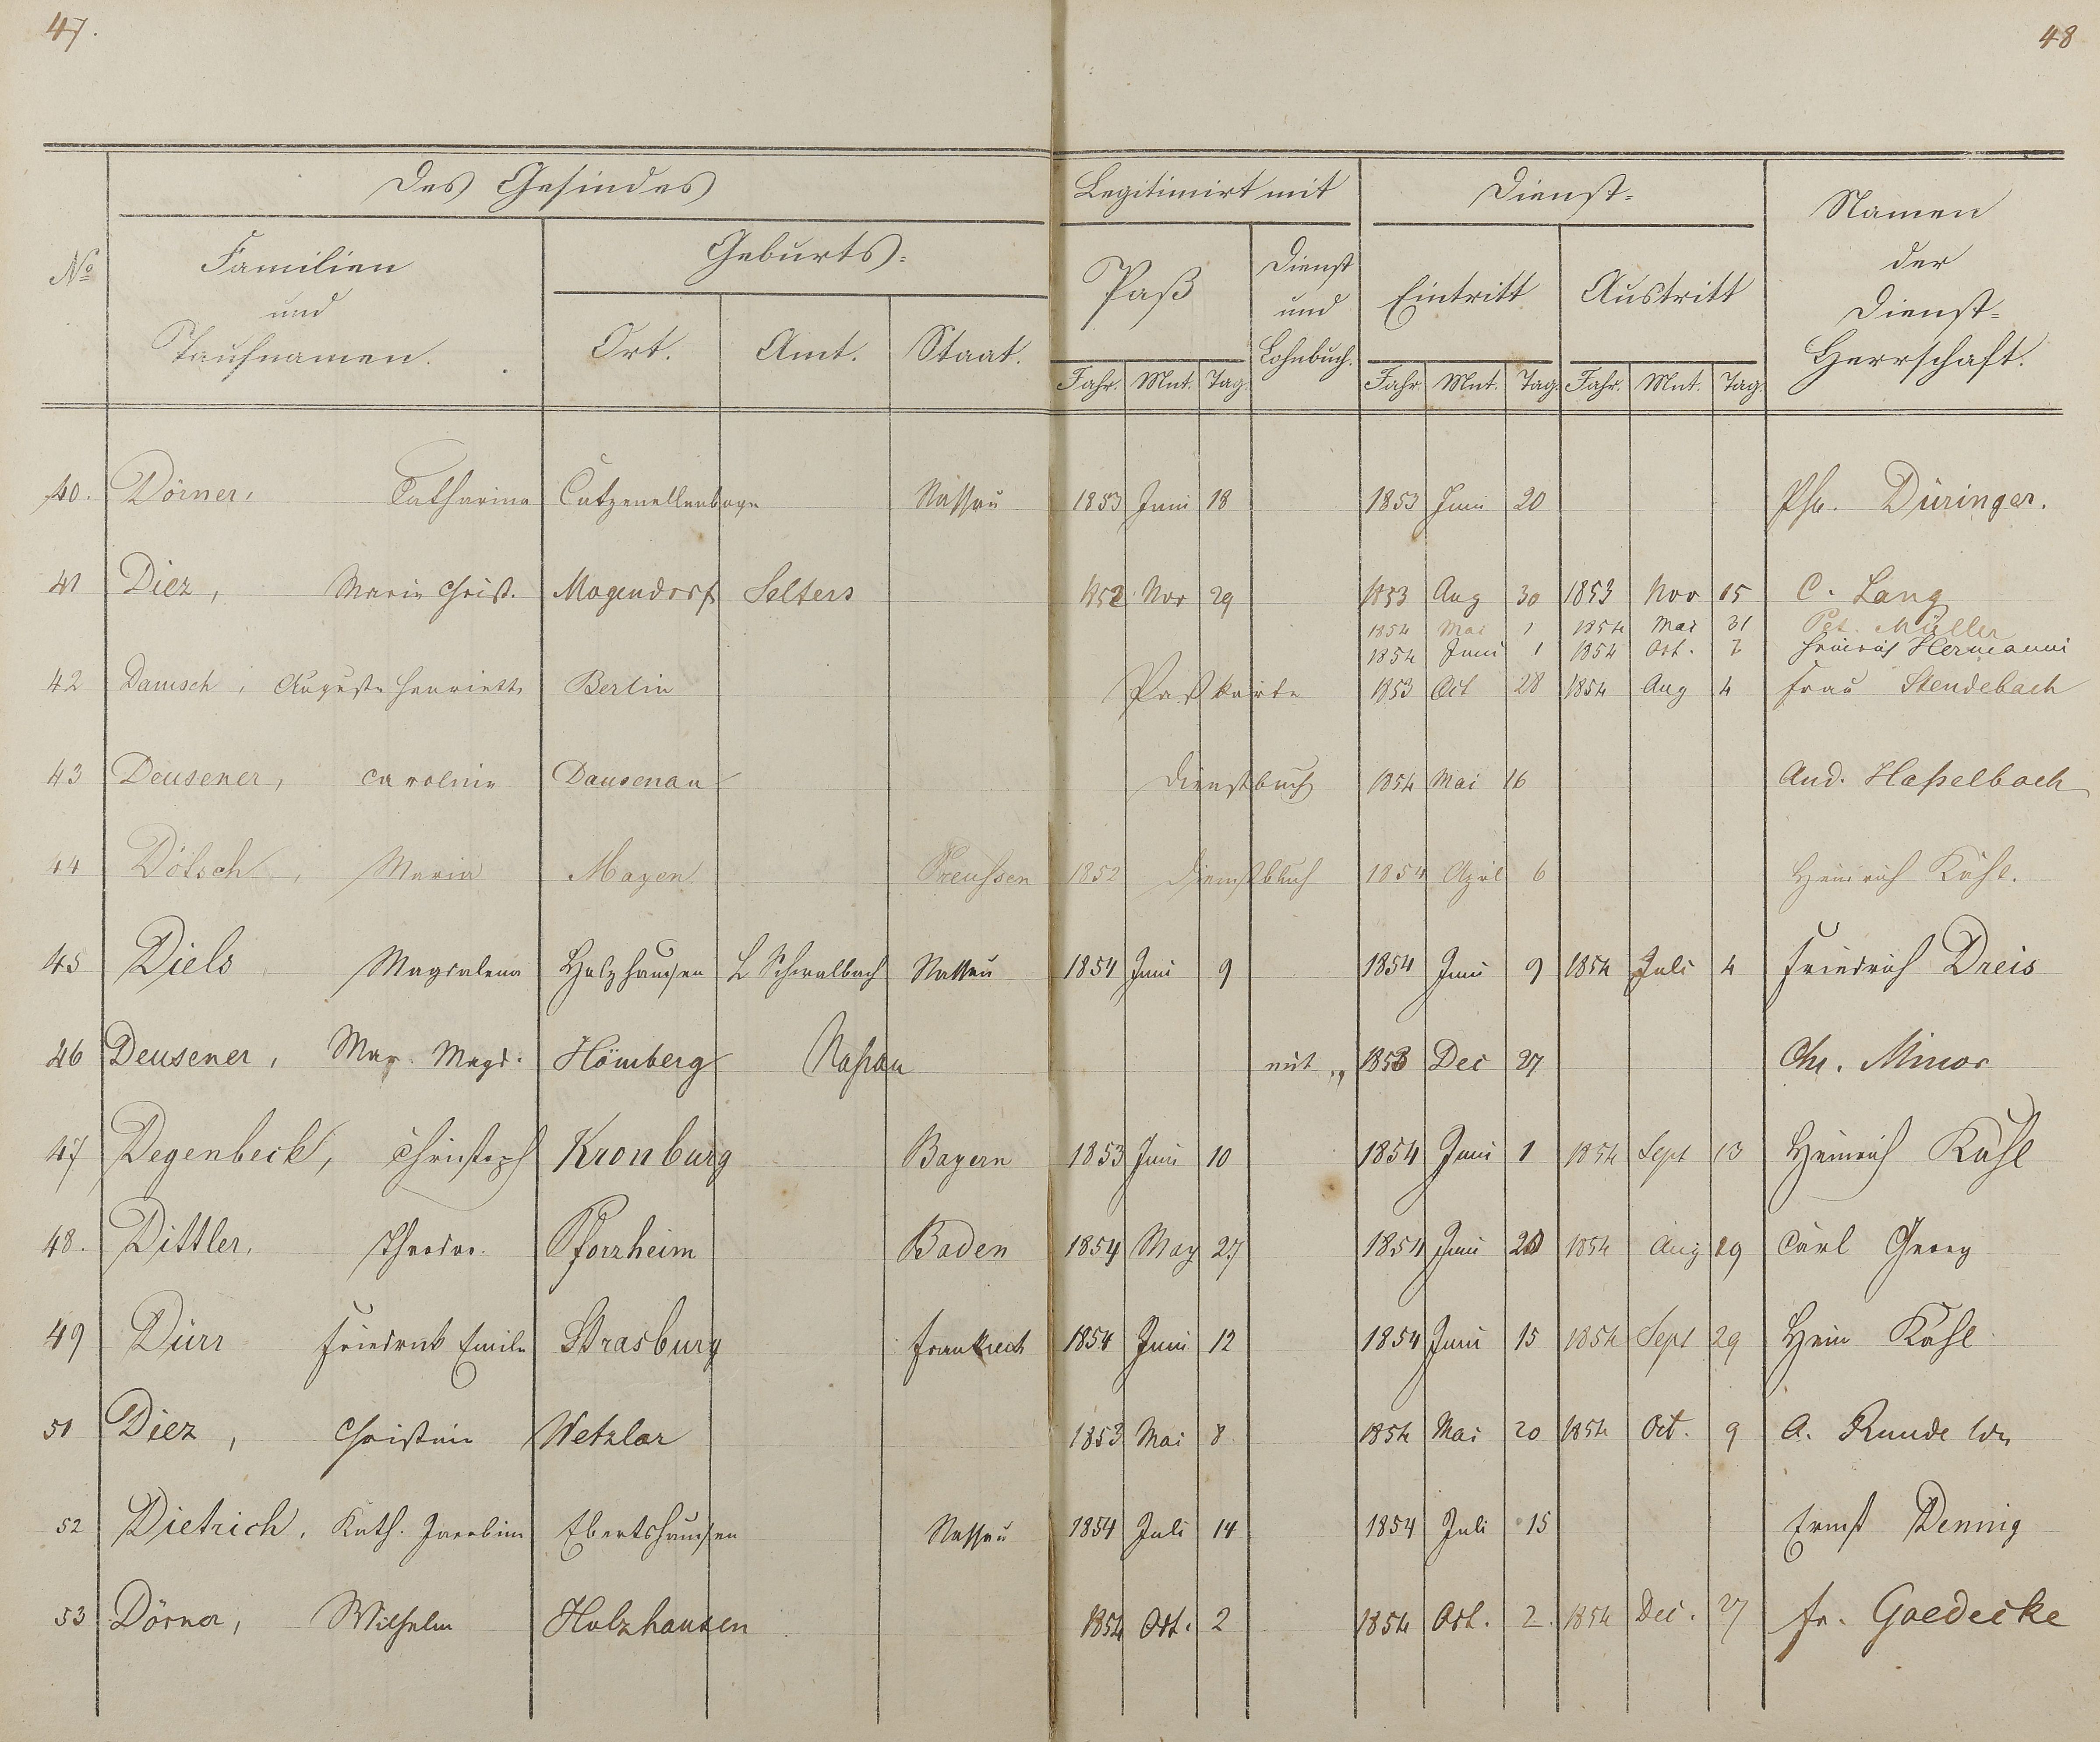 47.
48
Des Gesindes
Legitimirt mit
Dienst-
Namen der Dienst-Herrschaft.
No
Familien und Taufnamen.
Geburts-
Paß
Dienst und Lohnbuch.
Eintritt
Austritt
Ort. Amt. Staat.
Jahr. Mnt. Tag. Jahr. Mnt. Tag. Jahr. Mnt. Tag.
40. Dörner, Catharina Catzenellenboge Nassau 1853 Juni 18 1853 Juni 20 Ph. Düringer.
41 Diez, Marie Christ. Mogendorf Selters 1852 Nov 29 1853 Aug 30 1853 Nov 15 C. Lang
1854 Mai 1 1854 Mai 31 Pet. Müller
1854 Juni 1 1854 Oct. 7 Heinrich Hermanni
42 Damsch, Auguste Henriette Berlin Paßkarte 1853 Oct 28 1854 Aug 4 Frau Stendebach
43 Deusener, Caroline Dausenau Dienstbuch 1854 Mai 16 And. Haßelbach
44 Dötsch, Maria Mayen Preussen 1852 Dienstbuch 1854 April 6 Heinrich Kähl.
45 Diels Magdalena Holzhausen L Schwalbach Nassau 1854 Juni 9 1854 Juni 9 1854 Juli 4 Friedrich Dreis
46 Deusener, Mar. Magd. Hömberg Naßau mit „ 1853 Dec 27 Chr. Minor
47 Degenbeck, Christoph Kronburg Bayern 1853 Juni 10 1854 Juni 1 1854 Sept 13 Heinrich Kähl
48. Dittler, Theodor. Pforzheim Baden 1854 May 27 1854 Juni 20 1854 Aug 29 Carl Georg
49 Dürr Friedrich Emile Strasburg Frankreich 1854 Juni 12 1854 Juni 15 1854 Sept 29 Hein Kähl
51 Diez, Christine Wetzlar 1853 Mai 8 1854 Mai 20 1854 Oct. 9 A. Runde
52 Dietrich, Kath. Jacobine Ebertshausen Nassau 1854 Juli 14 1854 Juli 15 Ernst Dennig
53 Dörner, Wilhelm Holzhausen 1854 Oct. 2 1854 Oct. 2. 1854 Dec. 27 Fr. Goedecke